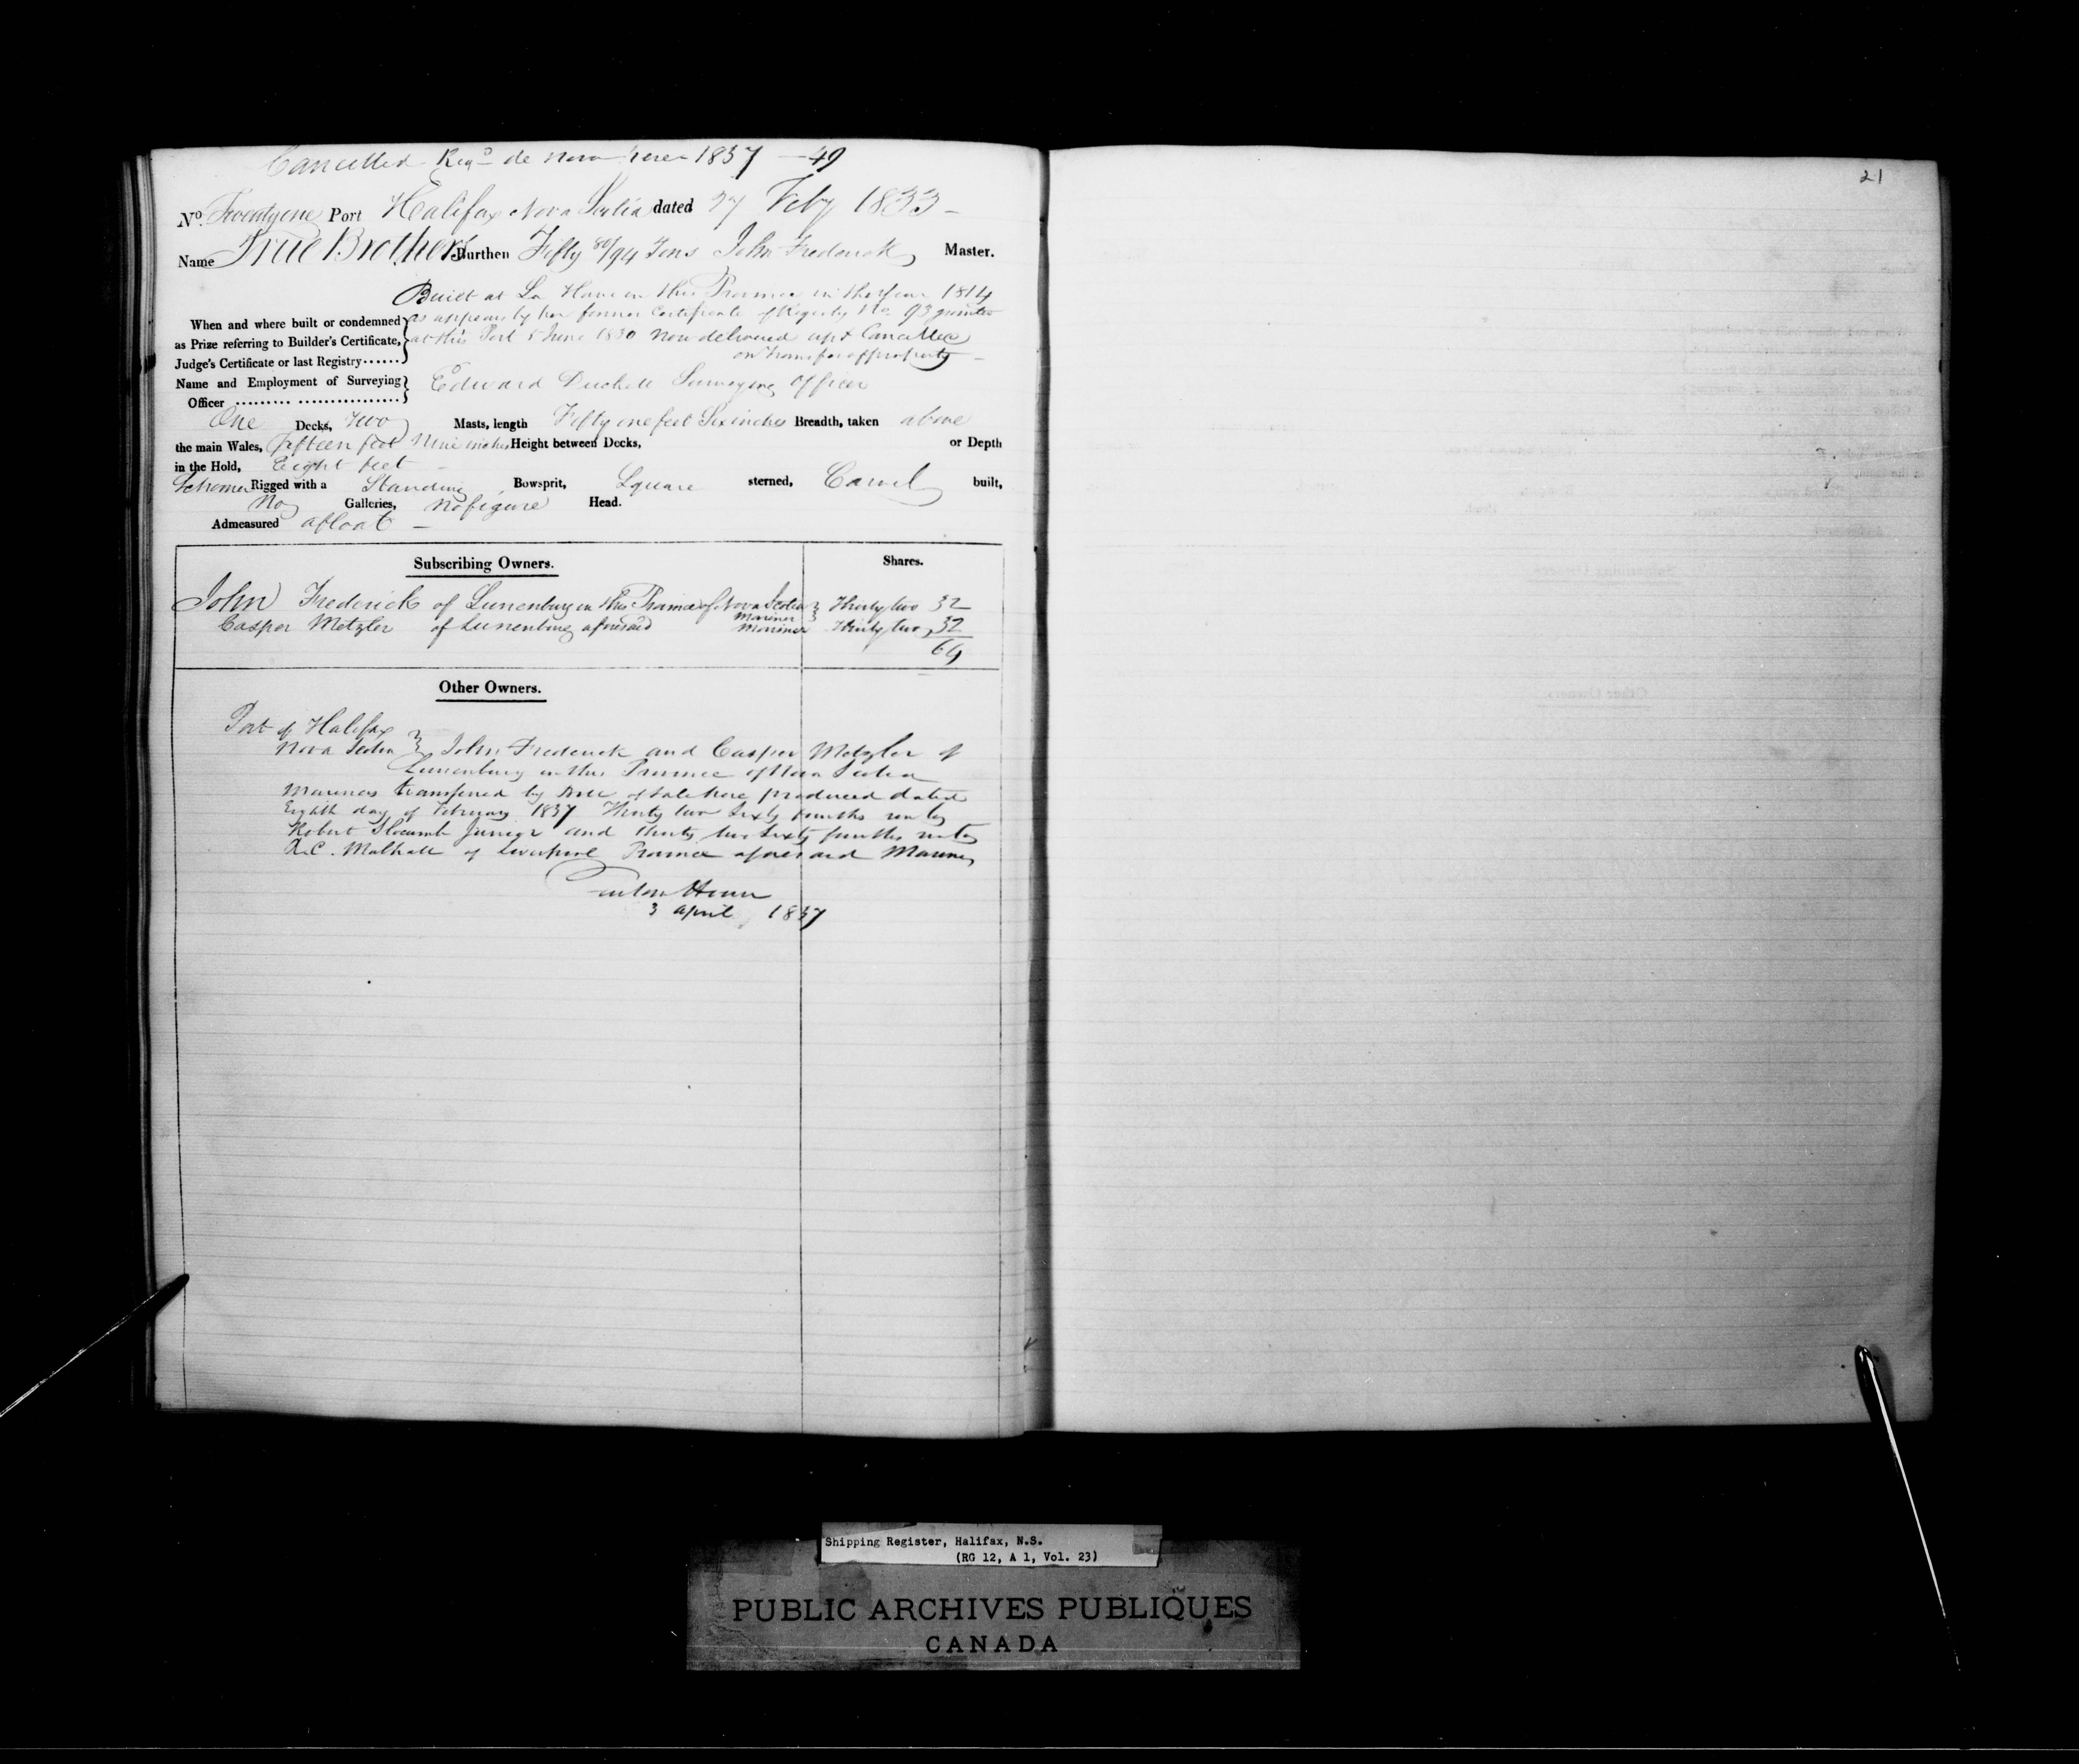 Cancelled Regd de novo here 1837 - 49
21
No. Twenty one Port Halifax Nova Scotia dated 27 Feby 1833 -
Name True Brothers Burthen Fifty 80/94 Tons John Frederick Master.
Built at La Have in this Province in the Year 1814
When and where built or condemned as appears by her former Certificate of Registry No 93 granted
as Prize referring to Builder's Certificate, at this Port 5 June 1830 now delivered up & Cancelled
Judge's Certificate or last Registry...... on transfer of property -
Name and Employment of Surveying Edward Surveying Officer
Officer ......... ................
One Decks, Two Masts, length Fifty one feet Six inches Breadth, taken above
the main Wales, Fifteen feet Nine inches Height between Decks, or Depth
in the Hold, Eight feet -
Schooner Rigged with a Standing Bowsprit, Square sterned, Carvel built,
No Galleries, No figure Head.
Admeasured afloat -
Subscribing Owners. Shares.
John Frederick of Lunenburg in this Province of Nova Scotia Mariner Thirty two 32
Casper Metzler of Lunenburg aforesaid Mariner Thirty two 32
64
Other Owners.
Port of Halifax
Nova Scotia John Frederick and Casper Metzler of
Lunenburg in this Province of Nova Scotia
Mariners transferred by Bill of Sale here produced dated
Eighth day of February 1837 Thirty two Sixty fourths unto
Robert Slocumb Junior and thirty two Sixty fourths unto
of Liverpool Province aforesaid Mariner
3 April 1837
Shipping Register, Halifax, N.S.
(RG 12, A 1, Vol. 23)
PUBLIC ARCHIVES PUBLIQUES
CANADA